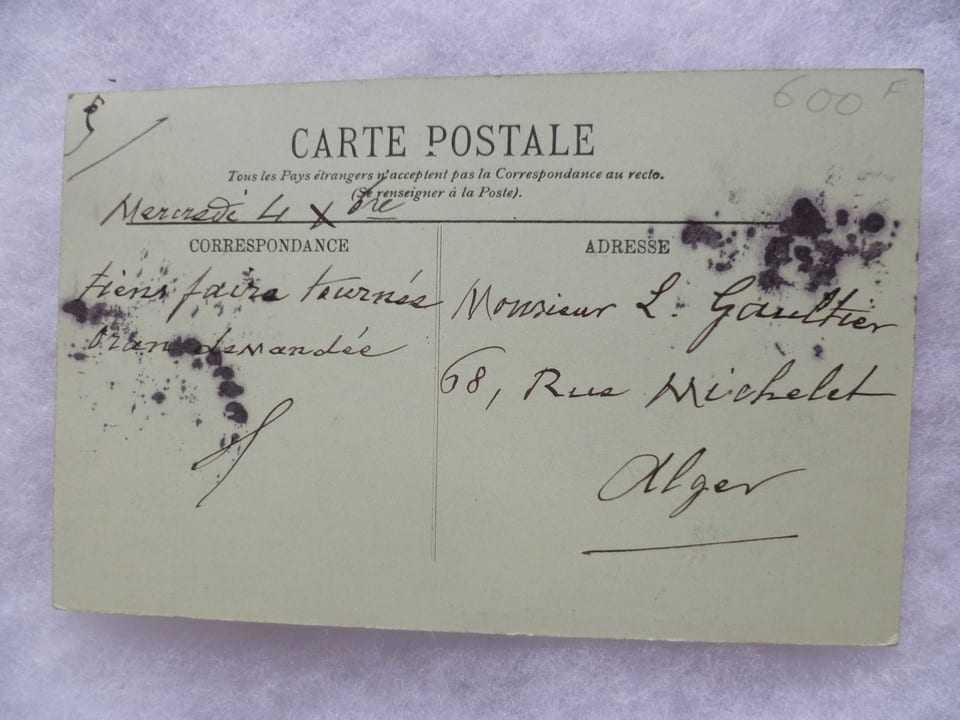 600 F
CARTE POSTALE
Tous les Pays étrangers n'acceptent pas la Correspondance au recto.
(Se renseigner à la Poste).
Mercredi 4 Xbre
CORRESPONDANCE
ADRESSE
tiens faire tournée
Oran demandée
Monsieur L. Gaultier
68, Rue Michelet
Alger